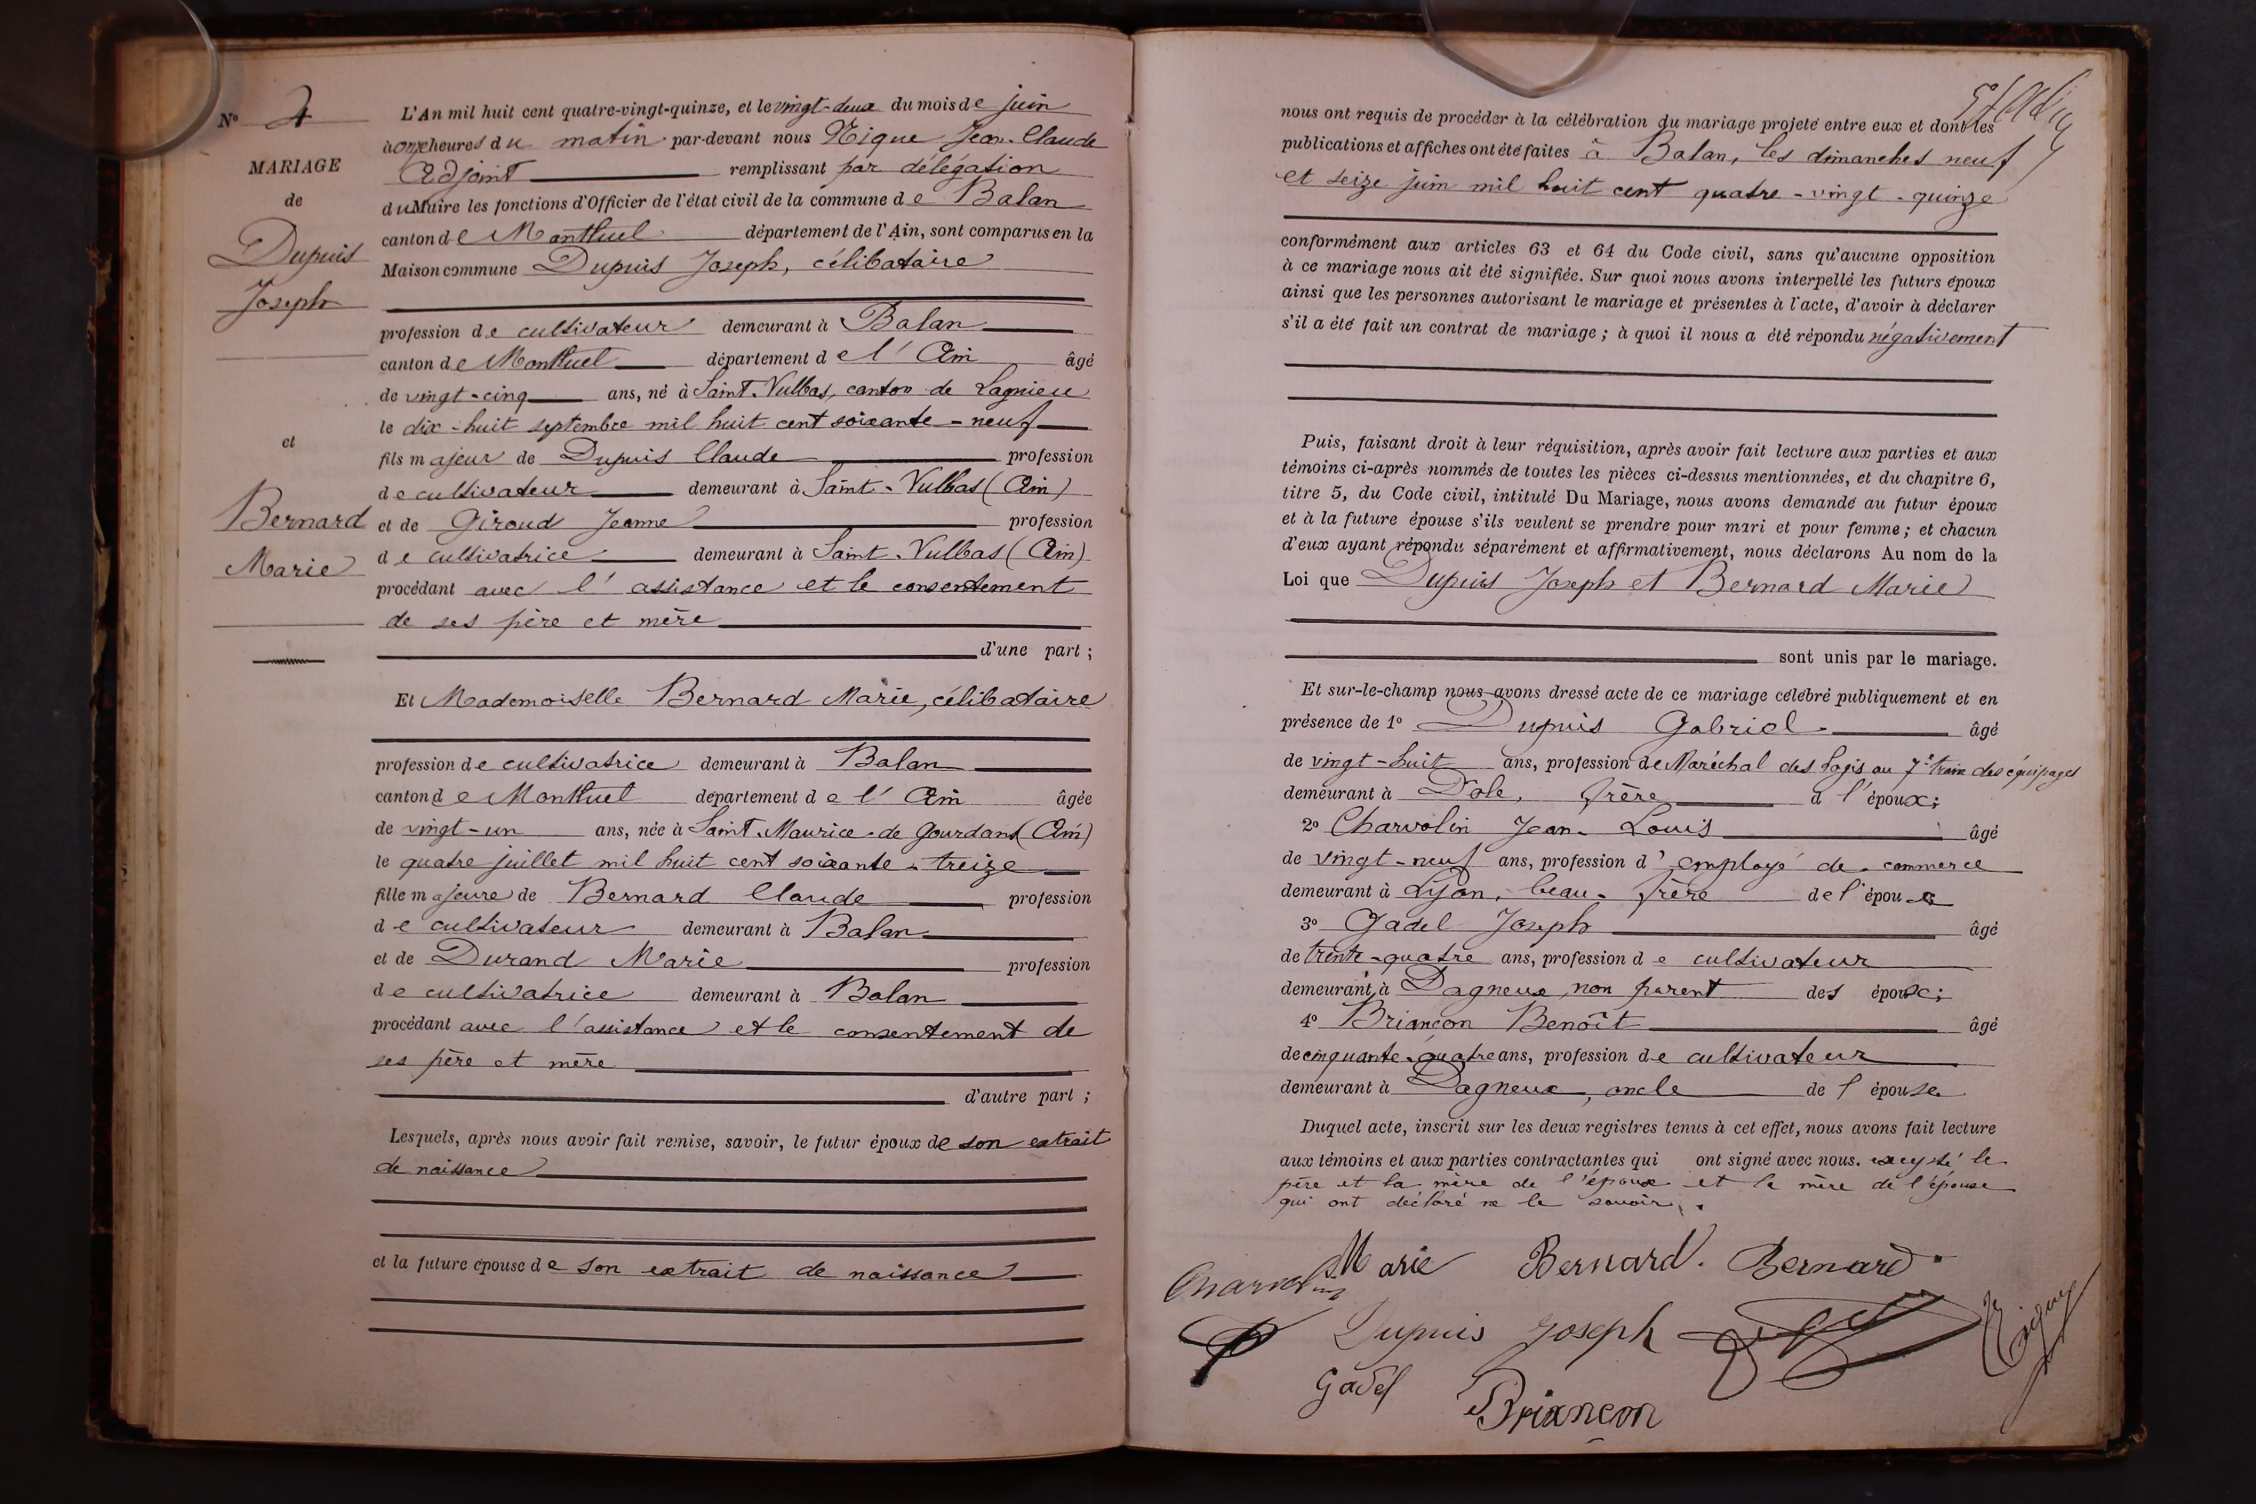 N° 4
MARIAGE
de
Dupuis
Joseph
et
Bernard
Marie
L'An mil huit cent quatre-vingt-quinze, et le vingt-deux du mois de juin
à onze heures du matin par-devant nous Nique Jean-Claude
Adjoint remplissant par délégation
du Maire les fonctions d'Officier de l'état civil de la commune de Balan
canton de Montluel département de l'Ain, sont comparus en la
Maison commune Dupuis Joseph, célibataire
profession de cultivateur demeurant à Balan
canton de Montluel département de l'Ain âgé
de vingt-cinq ans, né à Saint-Vulbas, canton de Lagnieu
le dix-huit septembre mil huit cent soixante-neuf
fils majeur de Dupuis Claude profession
de cultivateur demeurant à Saint-Vulbas (Ain)
et de Giroud Jeanne profession
de cultivatrice demeurant à Saint-Vulbas (Ain)
procédant avec l'assistance et le consentement
de ses père et mère
d'une part ;
Et Mademoiselle Bernard Marie, célibataire
profession de cultivatrice demeurant à Balan
canton de Montluel département de l'Ain âgée
de vingt-un ans, née à Saint-Maurice-de Gourdans (Ain)
le quatre juillet mil huit cent soixante-treize
fille majeure de Bernard Claude profession
de cultivateur demeurant à Balan
et de Durand Marie profession
de cultivatrice demeurant à Balan
procédant avec l'assistance et le consentement de
ses père et mère
d'autre part ;
Lesquels, après nous avoir fait remise, savoir, le futur époux de son extrait
de naissance
et la future épouse de son extrait de naissance
nous ont requis de procéder à la célébration du mariage projeté entre eux et dont les
publications et affiches ont été faites à Balan, les dimanches neuf
et seize juin mil huit cent quatre-vingt-quinze
conformément aux articles 63 et 64 du Code civil, sans qu'aucune opposition
à ce mariage nous ait été signifiée. Sur quoi nous avons interpellé les futurs époux
ainsi que les personnes autorisant le mariage et présentes à l'acte, d'avoir à déclarer
s'il a été fait un contrat de mariage ; à quoi il nous a été répondu négativement
Puis, faisant droit à leur réquisition, après avoir fait lecture aux parties et aux
témoins ci-après nommés de toutes les pièces ci-dessus mentionnées, et du chapitre 6,
titre 5, du Code civil, intitulé Du Mariage, nous avons demandé au futur époux
et à la future épouse s'ils veulent se prendre pour mari et pour femme ; et chacun
d'eux ayant répondu séparément et affirmativement, nous déclarons Au nom de la
Loi que Dupuis Joseph et Bernard Marie
sont unis par le mariage.
Et sur-le-champ nous avons dressé acte de ce mariage célébré publiquement et en
présence de 1° Dupuis Gabriel âgé
de vingt-huit ans, profession de Maréchal des logis au 7e train des équipages
demeurant à Dole, frère d l'époux ;
2° Charvolin Jean-Louis âgé
de vingt-neuf ans, profession d'employé de commerce
demeurant à Lyon, beau-frère de l'époux
3° Gadel Joseph âgé
de trente-quatre ans, profession de cultivateur
demeurant à Dagneux, non parent des époux ;
4° Briançon Benoît âgé
de cinquante-quatre ans, profession de cultivateur
demeurant à Dagneux, oncle de l'épouse
Duquel acte, inscrit sur les deux registres tenus à cet effet, nous avons fait lecture
aux témoins et aux parties contractantes qui ont signé avec nous. excepté le
père et la mère de l'époux et la mère de l'épouse
qui ont déclaré ne le savoir.
Marie Bernard. Bernard
Charvolin
Dupuis Joseph
Nique
Gadel
Briancon